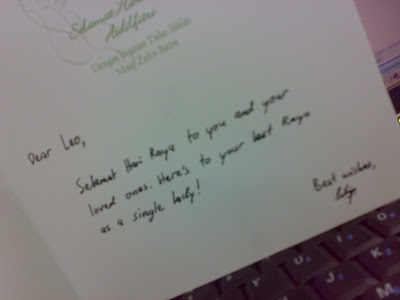 Selamat Hari
Aidilfitri
Dengan Ingatan Tulus Ikhlas
Maaf Zahir Batin
Dear Leo,
Selamat Hari Raya to you and your
loved ones. Here's to your last Raya
as a single lady!
Best wishes,
Y
U
I
H
J
K
M